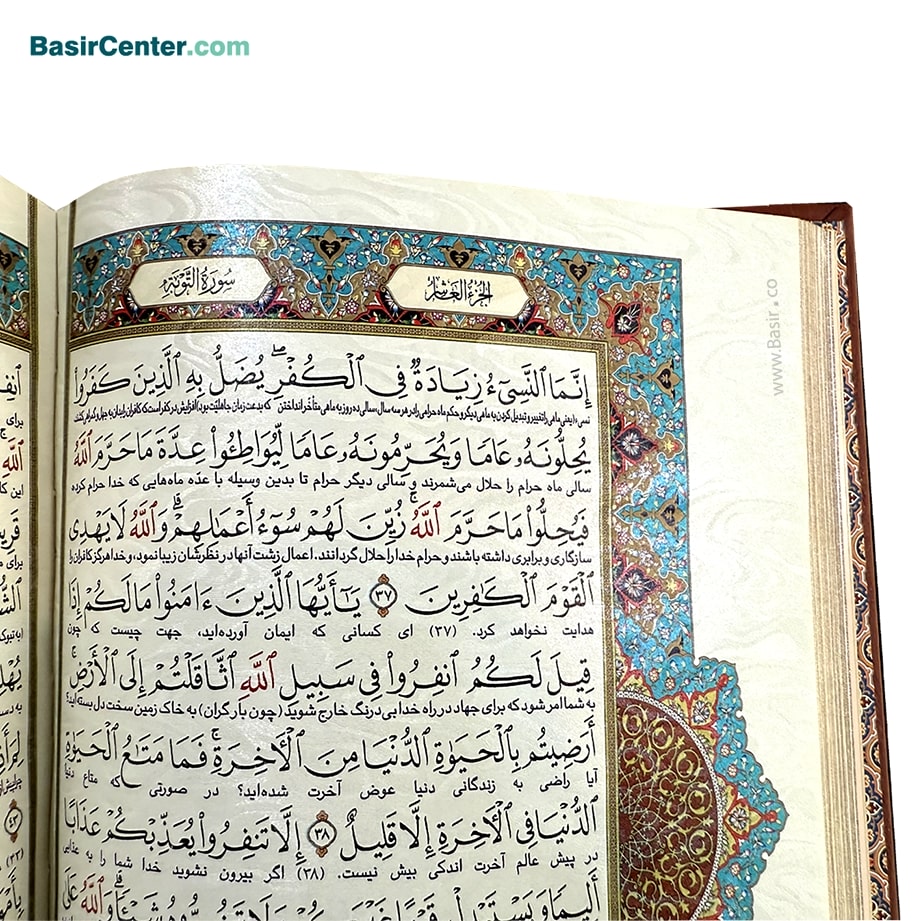 BasirCenter.com
الجزء العاشر
سورة التوبة
www.Basir.co
إِنَّمَا ٱلنَّسِىٓءُ زِيَادَةٌ فِى ٱلْكُفْرِ ۖ يُضَلُّ بِهِ ٱلَّذِينَ كَفَرُوا۟
نسیء (یعنی ماهی را تغییر و تبدیل کردن به ماهی دیگر و حکم ماه حرامی را در هر سه سال، سالی ده روز به ماهی متأخر انداختن که بدعت زمان جاهلیت بود) افزایش در کفر است که کافران را بدان به جهل و گمراهی کشند
يُحِلُّونَهُۥ عَامًا وَيُحَرِّمُونَهُۥ عَامًا لِّيُوَاطِـُٔوا۟ عِدَّةَ مَا حَرَّمَ ٱللَّهُ
سالی ماه حرام را حلال می‌شمرند و سالی دیگر حرام تا بدین وسیله با عده ماه‌هایی که خدا حرام کرده
فَيُحِلُّوا۟ مَا حَرَّمَ ٱللَّهُ ۚ زُيِّنَ لَهُمْ سُوٓءُ أَعْمَـٰلِهِمْ ۗ وَٱللَّهُ لَا يَهْدِى
سازگاری و برابری داشته باشند و حرام خدا را حلال گردانند. اعمال زشت آنها در نظرشان زیبا نمود، و خدا هرگز کافران را
ٱلْقَوْمَ ٱلْكَـٰفِرِينَ ﴿٣٧﴾ يَـٰٓأَيُّهَا ٱلَّذِينَ ءَامَنُوا۟ مَا لَكُمْ إِذَا
هدایت نخواهد کرد. (۳۷) ای کسانی که ایمان آورده‌اید، جهت چیست که چون
قِيلَ لَكُمُ ٱنفِرُوا۟ فِى سَبِيلِ ٱللَّهِ ٱثَّاقَلْتُمْ إِلَى ٱلْأَرْضِ ۚ
به شما امر شود که برای جهاد در راه خدا بی‌درنگ خارج شوید (چون بار گران) به خاک زمین سخت دل بسته‌اید؟
أَرَضِيتُم بِٱلْحَيَوٰةِ ٱلدُّنْيَا مِنَ ٱلْـَٔاخِرَةِ ۚ فَمَا مَتَـٰعُ ٱلْحَيَوٰةِ
آیا راضی به زندگانی دنیا عوض آخرت شده‌اید؟ در صورتی که متاع دنیا
ٱلدُّنْيَا فِى ٱلْـَٔاخِرَةِ إِلَّا قَلِيلٌ ﴿٣٨﴾ إِلَّا تَنفِرُوا۟ يُعَذِّبْكُمْ عَذَابًا
در پیش عالم آخرت اندکی بیش نیست. (۳۸) اگر بیرون نشوید خدا شما را به عذابی
أَلِيمًا وَيَسْتَبْدِلْ قَوْمًا غَيْرَكُمْ وَلَا تَضُرُّوهُ شَيْـًٔا ۗ وَٱللَّهُ عَلَىٰ